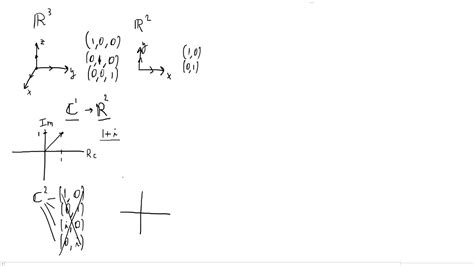 ℝ³
z
y
x
(1,0,0)
(0,1,0)
(0,0,1)
ℝ²
y
x
(1,0)
(0,1)
ℂ¹ → ℝ²
Im
1
1+i
1
Re
ℂ²
(1,0)
(0,1)
(i,0)
(0,i)